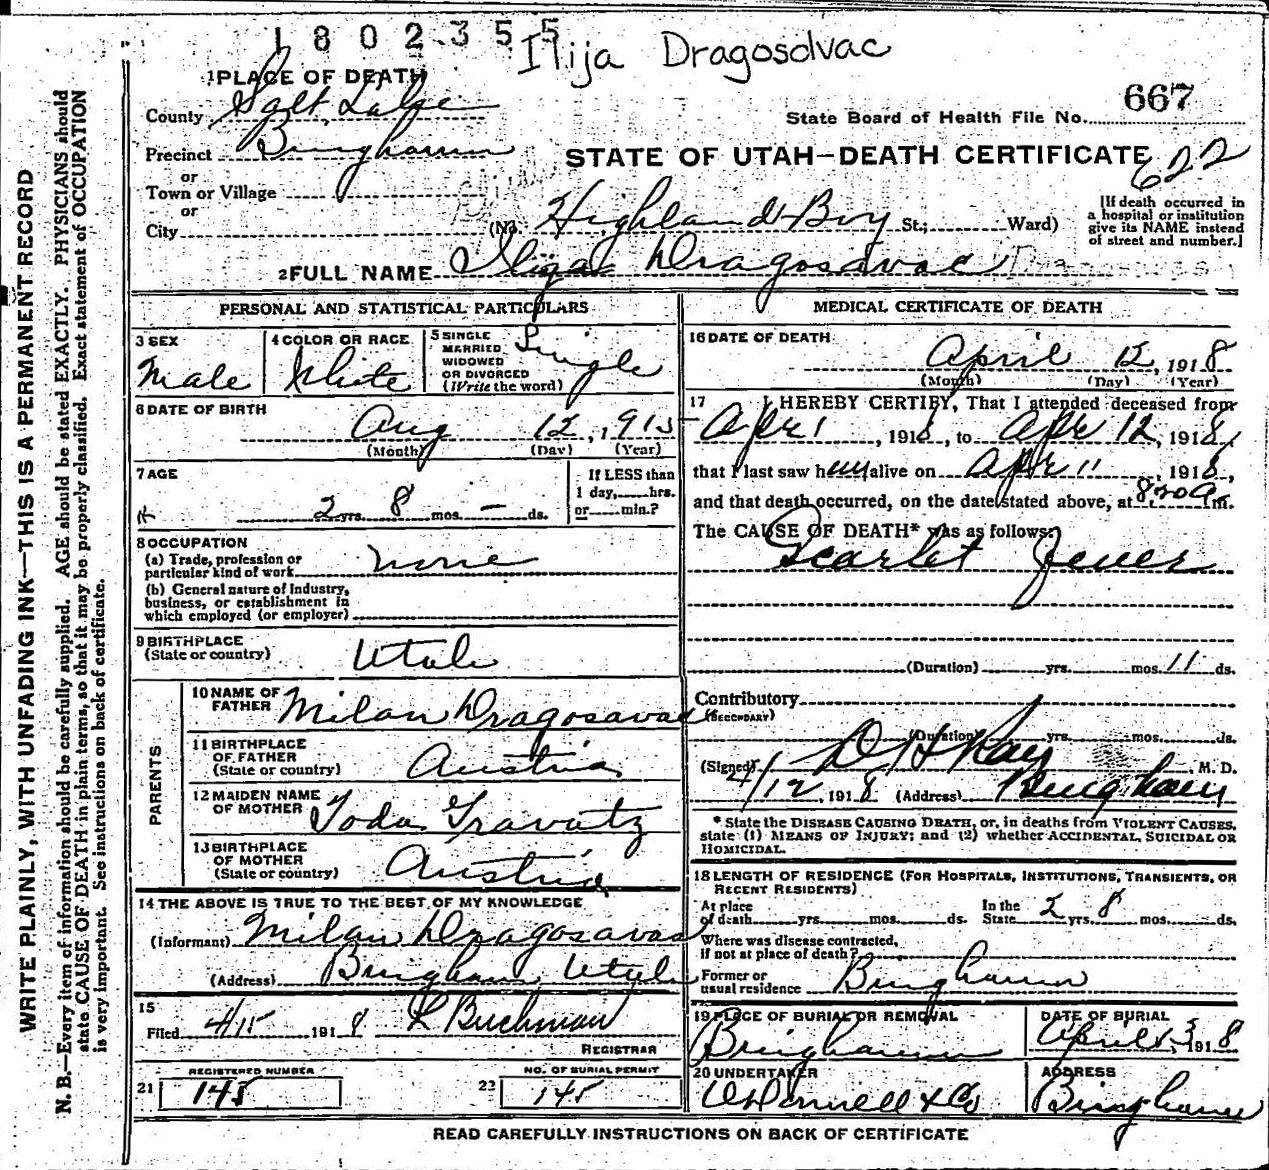 1802355
Ilija Dragosolvac
1 PLACE OF DEATH
County Salt Lake
State Board of Health File No. 667
Precinct Bingham
STATE OF UTAH—DEATH CERTIFICATE
622
or
Town or Village
or
City (No. Highland Boy St.; Ward)
[If death occurred in
a hospital or institution
give its NAME instead
of street and number.]
2 FULL NAME Iliga Dragosavac
WRITE PLAINLY, WITH UNFADING INK—THIS IS A PERMANENT RECORD
N. B.—Every item of information should be carefully supplied. AGE should be stated EXACTLY. PHYSICIANS should
state CAUSE OF DEATH in plain terms, so that it may be properly classified. Exact statement of OCCUPATION
is very important. See instructions on back of certificate.
PERSONAL AND STATISTICAL PARTICULARS
3 SEX
Male
4 COLOR OR RACE
White
5 SINGLE
MARRIED
WIDOWED
OR DIVORCED
(Write the word)
Single
6 DATE OF BIRTH
Aug 12, 1915
(Month) (Day) (Year)
7 AGE
2 yrs. 8 mos. – ds.
If LESS than
1 day, hrs.
or min.?
8 OCCUPATION
(a) Trade, profession or
particular kind of work none
(b) General nature of Industry,
business, or establishment in
which employed (or employer)
9 BIRTHPLACE
(State or country) Utah
PARENTS
10 NAME OF
FATHER Milan Dragosavac
11 BIRTHPLACE
OF FATHER
(State or country) Austria
12 MAIDEN NAME
OF MOTHER Toda Travatz
13 BIRTHPLACE
OF MOTHER
(State or country) Austria
14 THE ABOVE IS TRUE TO THE BEST OF MY KNOWLEDGE
(Informant) Milan Dragosavac
(Address) Bingham Utah
15
Filed 4/15 1918 L Buchman
REGISTRAR
21 REGISTERED NUMBER
145
22 NO. OF BURIAL PERMIT
145
MEDICAL CERTIFICATE OF DEATH
16 DATE OF DEATH
April 12, 1918
(Month) (Day) (Year)
17 I HEREBY CERTIFY, That I attended deceased from
Apr 1, 1918, to Apr 12, 1918,
that I last saw him alive on Apr 11, 1918,
and that death occurred, on the date stated above, at 8:30 a.m.
The CAUSE OF DEATH* was as follows:
Scarlet Fever
(Duration) yrs. mos. 11 ds.
Contributory
(SECONDARY)
(Duration) yrs. mos. ds.
(Signed) D H Ray M. D.
4/12, 1918 (Address) Bingham
* State the DISEASE CAUSING DEATH, or, in deaths from VIOLENT CAUSES,
state (1) MEANS OF INJURY; and (2) whether ACCIDENTAL, SUICIDAL OR
HOMICIDAL.
18 LENGTH OF RESIDENCE (FOR HOSPITALS, INSTITUTIONS, TRANSIENTS, OR
RECENT RESIDENTS)
At place
of death yrs. mos. ds.
In the
State 2 yrs. 8 mos. ds.
Where was disease contracted,
if not at place of death?
Former or
usual residence Bingham
19 PLACE OF BURIAL OR REMOVAL
Bingham
DATE OF BURIAL
April 13 1918
20 UNDERTAKER
O'Donnell & Co
ADDRESS
Bingham
READ CAREFULLY INSTRUCTIONS ON BACK OF CERTIFICATE